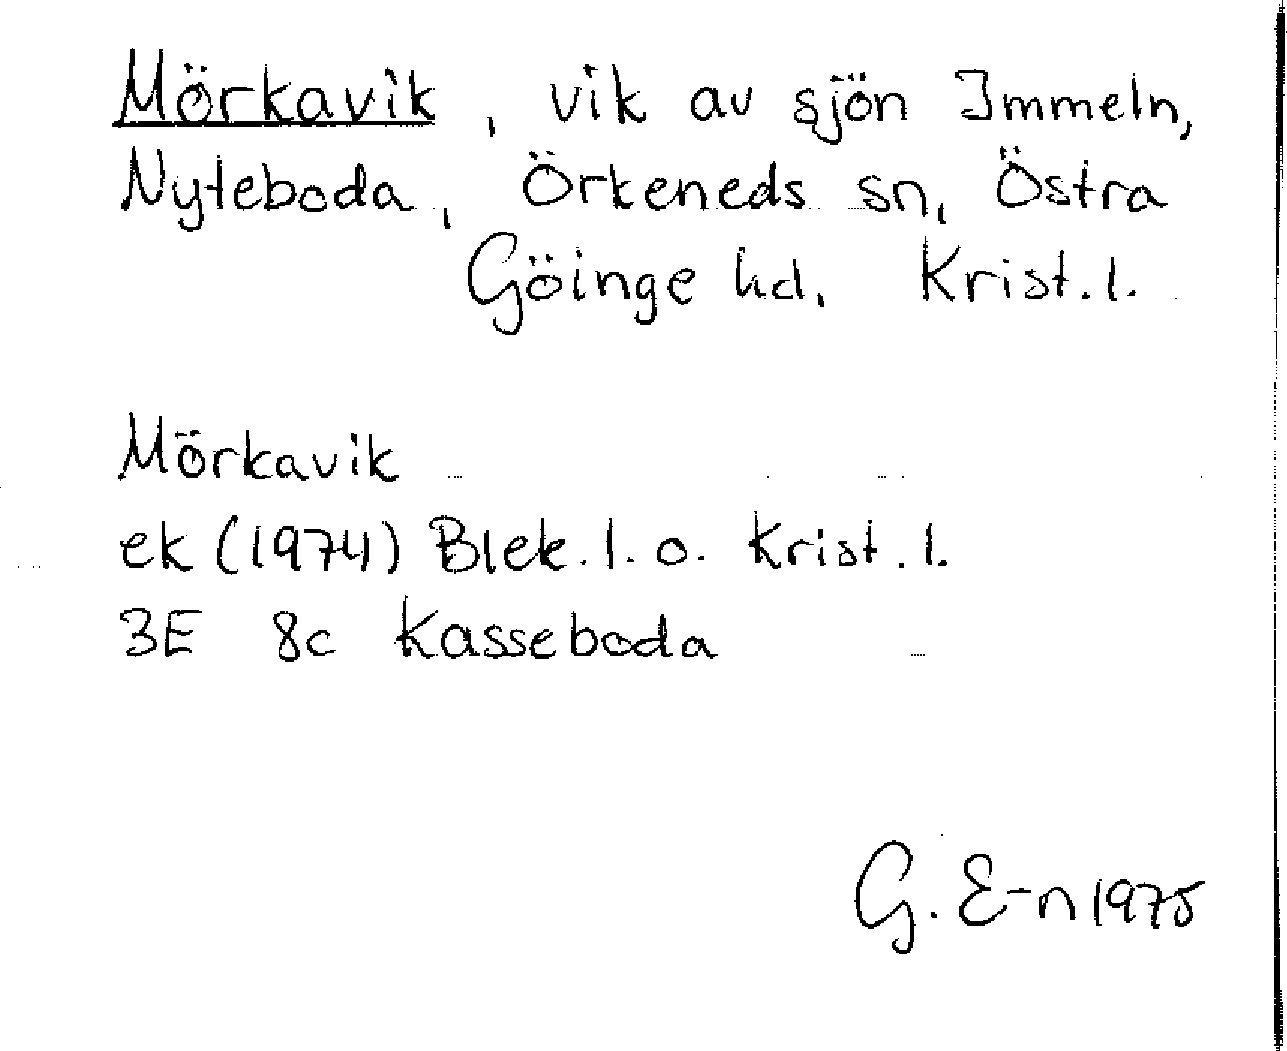 Mörkavik, vik av sjön Immeln,
Nyteboda, Örkeneds sn, Östra
Göinge hd, Krist. l.
Mörkavik
ek (1974) Blek. l. o. Krist. l.
3E 8c Kasseboda
G. E-n 1975